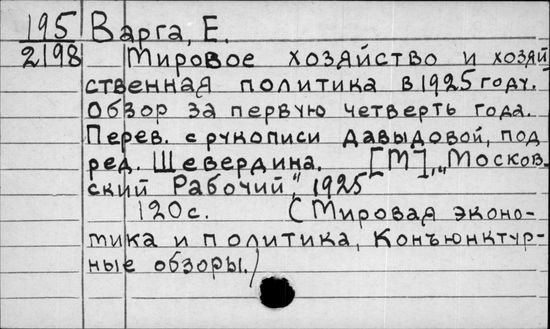 195 Варга, Е.
2198 Мировое хозяйство и хозяй
ственная политика в 1925 году.
Обзор за первую четверть года.
Перев. с рукописи Давыдовой, под
ред. Шевердина. [М], „Москов-
ский Рабочий", 1925
120 с. (Мировая эконо-
мика и политика, Конъюнктур-
ные обзоры.)